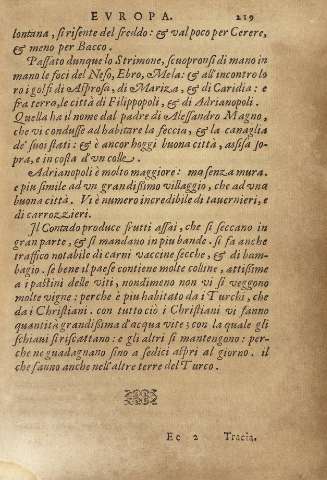 EVROPA. 219
lontana, si risente del freddo: & val poco per Cerere,
& meno per Bacco.
Passato dunque lo Strimone, scuopronsi di mano in
mano le foci del Neso, Ebro, Mela: & all'incontro lo
ro i golfi di Asprosa, di Mariza, & di Caridia: e
fra terro, le città di Filippopoli, & di Adrianopoli.
Quella ha il nome dal padre di Alessandro Magno,
che vi condusse ad habitare la feccia, & la canaglia
de' suoi stati: & è ancor hoggi buona città, assisa so-
pra, e in costa d'vn colle.
Adrianopoli è molto maggiore: ma senza mura.
e piu simile ad vn grandissimo villaggio, che ad vna
buona città. Vi è numero incredibile di tauernieri, e
di carrozzieri.
Il Contado produce frutti assai, che si seccano in
gran parte, & si mandano in piu bande. si fa anche
traffico notabile di carni vaccine secche, & di bam-
bagio. se bene il paese contiene molte colline, attissime
a i pastini delle viti, nondimeno non vi si veggono
molte vigne: perche è piu habitato da i Turchi, che
da i Christiani. con tutto ciò i Christiani vi fanno
quantità grandissima d'acqua vite; con la quale gli
schiaui si riscattano: e gli altri si mantengono: per-
che ne guadagnano sino a sedici aspri al giorno. il
che fanno anche nell'altre terre del Turco.
Ee 2 Tracia.